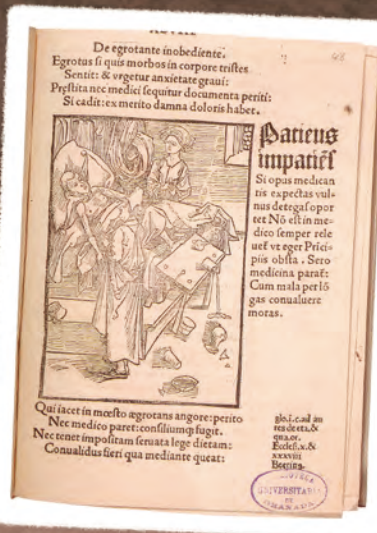 De egrotante inobediente.
Egrotus si quis morbos in corpore tristes
Sentit: & vrgetur anxietate graui:
Pręstita nec medici sequitur documenta periti:
Si cadit: ex merito damna doloris habet.
Patiens
impatiēs
Si opus medican
tis expectas vul-
nus detegas opor
tet Nō est in me-
dico semper rele
uet vt eger Prici-
piis obsta. Sero
medicina parat:
Cum mala per lō
gas conualuere
moras.
Qui iacet in mœsto ægrotans angore: perito
Nec medico paret: consiliumq; fugit.
Nec tenet impositam seruata lege dietam:
Conualidus fieri qua mediante queat:
Ecclesi.x.&
xxxviii
UNIVERSITARIA
DE
GRANADA